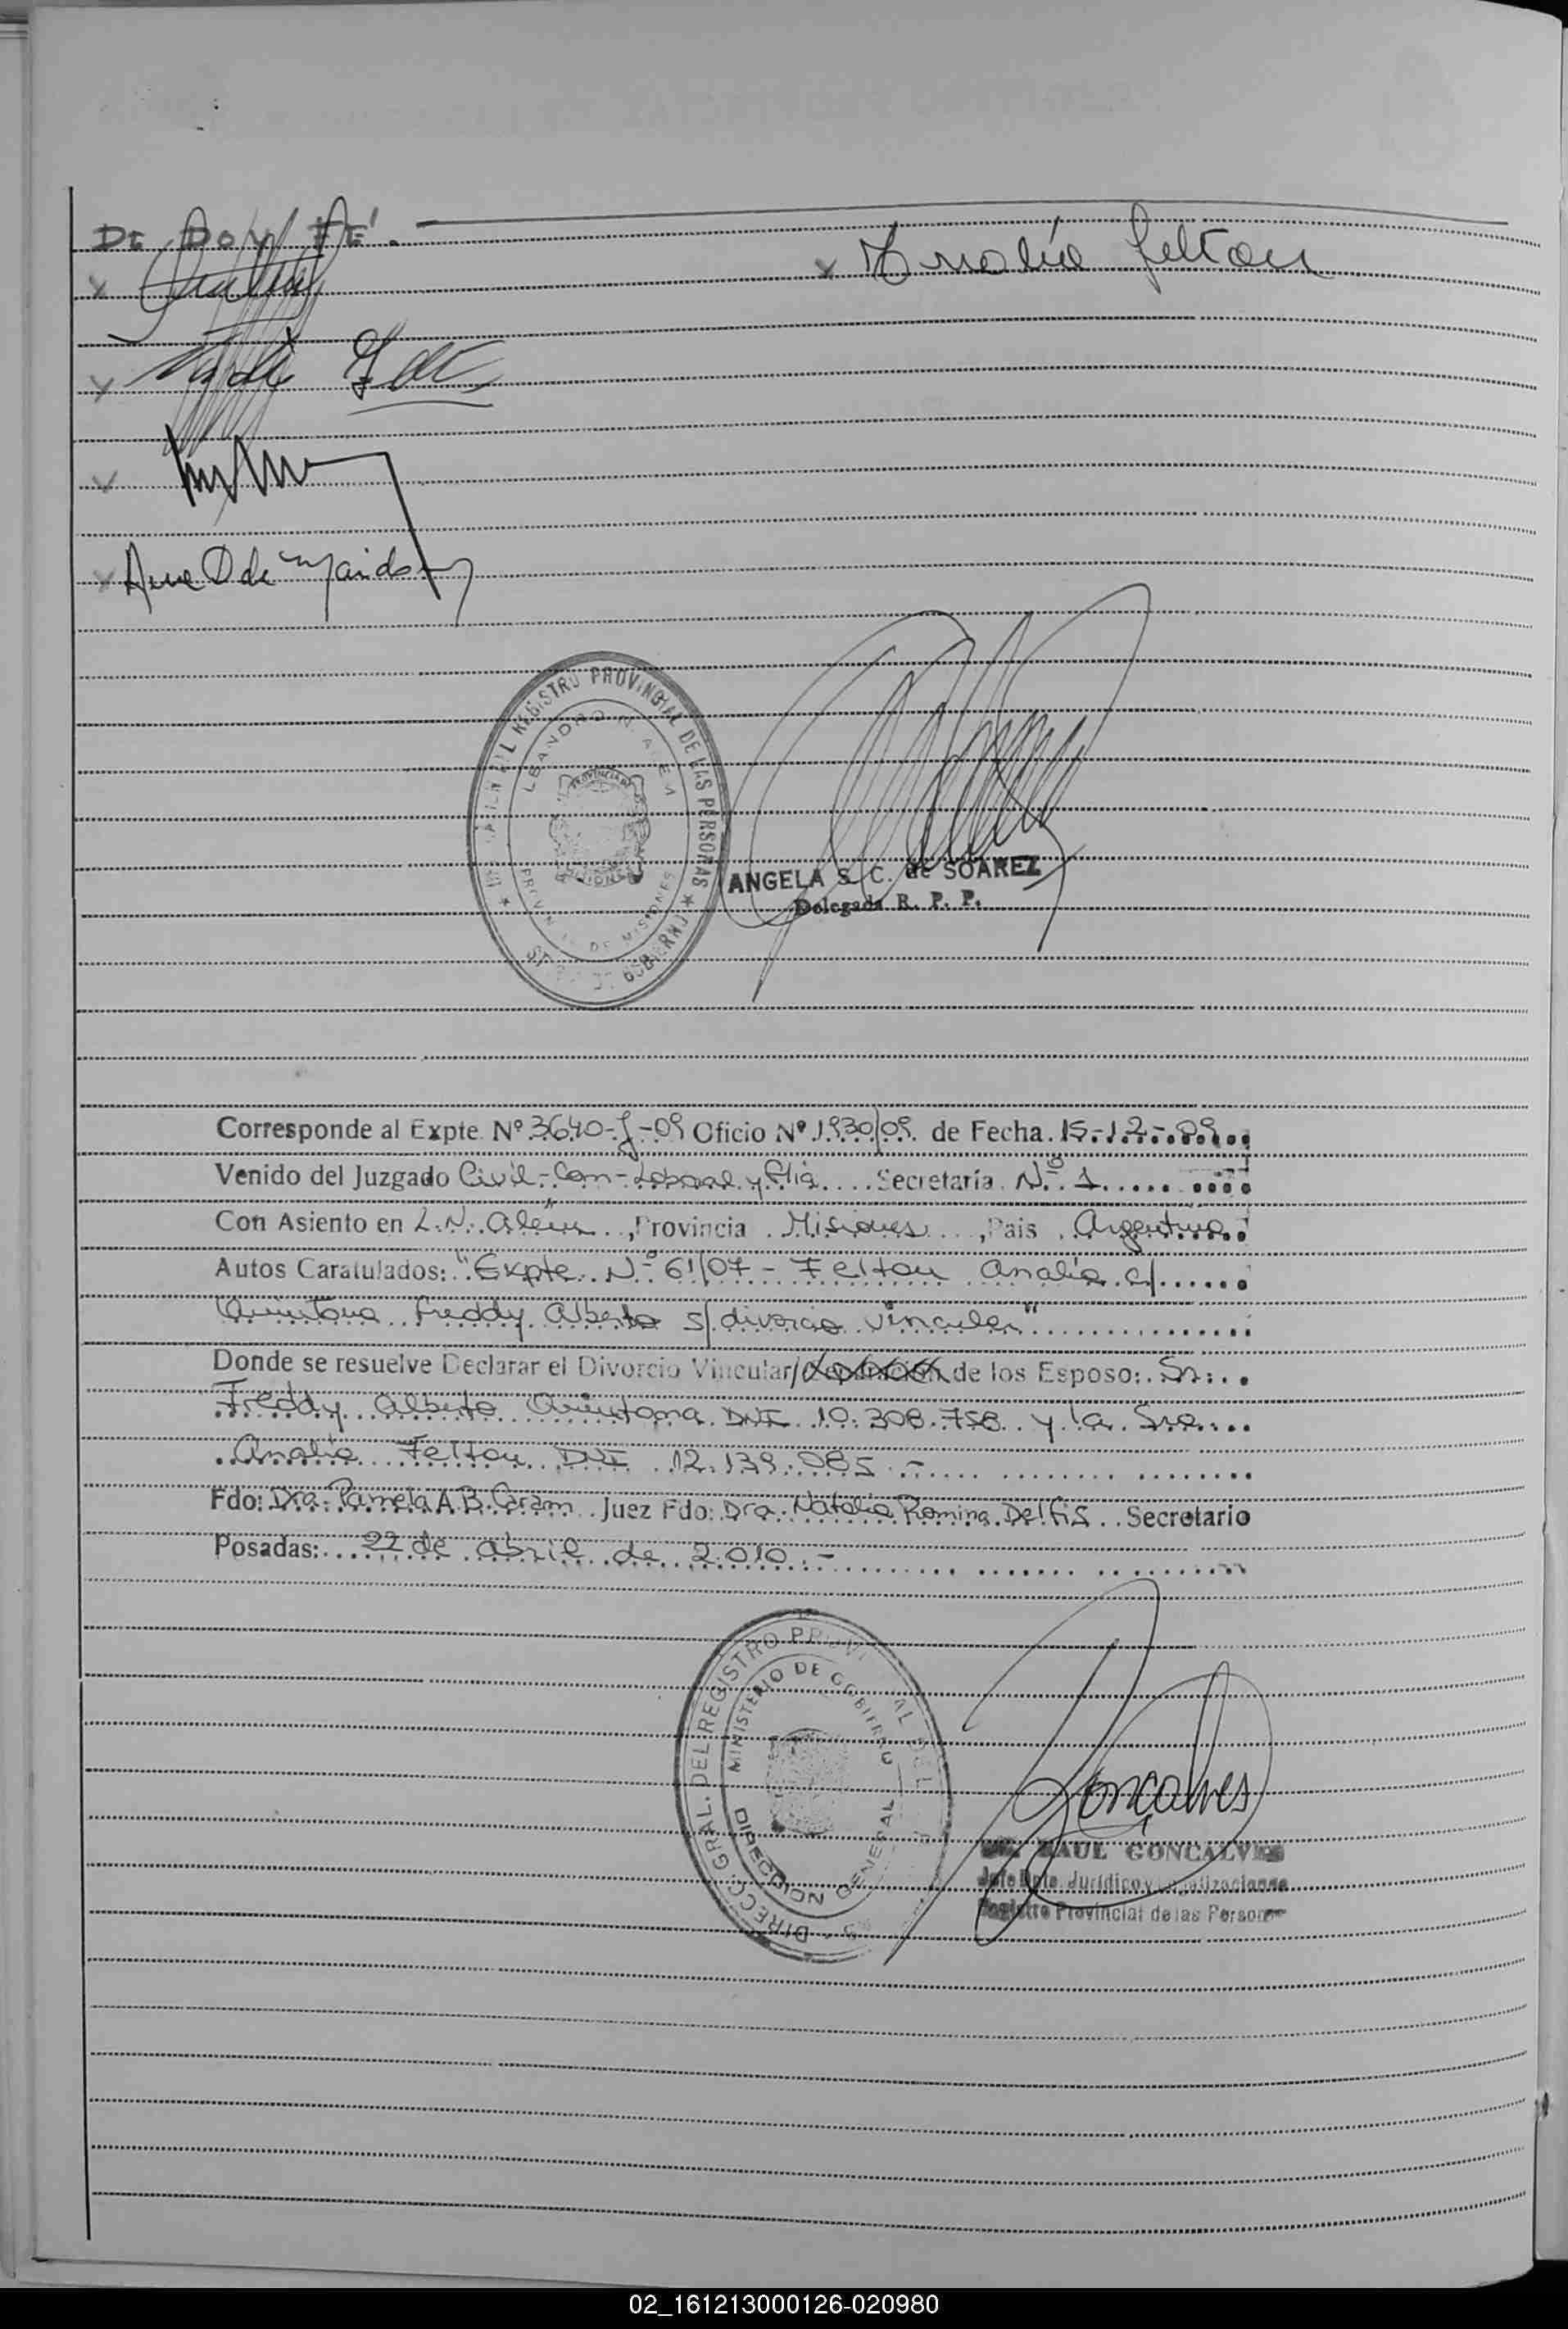 DE DOY FE'.
x
x Analía Felton
x
x
x Ana D de
REGISTRO PROVINCIAL DE LAS PERSONAS
LEANDRO N. ALEM
PROVINCIA DE MISIONES
ANGELA S. C. de SOAREZ
Delegada R. P. P.
Corresponde al Expte. Nº 3640-J-09 Oficio Nº 1930/09 de Fecha 15-12-09
Venido del Juzgado Civil-Com-Laboral y Flia. Secretaría Nº 1
Con Asiento en L.N. Alem, Provincia Misiones, Pais Argentina
Autos Caratulados: "Expte. Nº 61/07 - Felton Analía c/
Quintana Freddy Alberto s/divorcio vincular"
Donde se resuelve Declarar el Divorcio Vincular/ de los Esposo: Sr.
Freddy Alberto Quintana DNI 10.308.758 y la Sra.
Analía Felton DNI 12.139.085.-
Fdo: Dra. Pamela A.B. Juez Fdo: Dra. Natalia Romina Delfis Secretario
Posadas: 22 de abril de 2010.-
DIRECC. GRAL. DEL REGISTRO
MINISTERIO DE GOBIERNO
DIRECCION GENERAL
Goncalves
RAUL GONCALVES
Jefe Dpto. Jurídico y Legalizaciones
Registro Provincial de las Personas
02_161213000126-020980